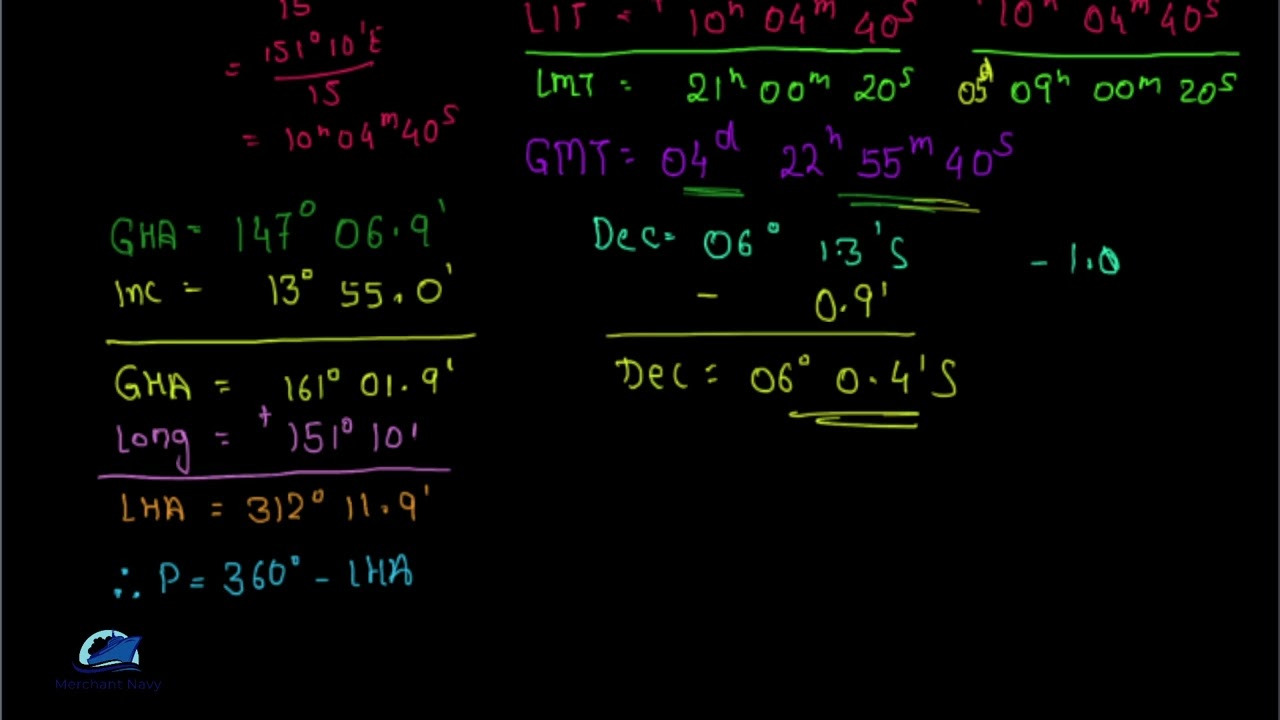 15
= 151° 10' E
15
= 10ʰ 04ᵐ 40ˢ
LIT = 10ʰ 04ᵐ 40ˢ 10ʰ 04ᵐ 40ˢ
LMT = 21ʰ 00ᵐ 20ˢ 05ᵈ 09ʰ 00ᵐ 20ˢ
GMT = 04ᵈ 22ʰ 55ᵐ 40ˢ
GHA = 147° 06.9'
Inc = 13° 55.0'
GHA = 161° 01.9'
Long = + 151° 10'
LHA = 312° 11.9'
∴ P = 360° - LHA
Dec = 06° 1.3' S - 1.0
- 0.9'
Dec = 06° 0.4' S
Merchant Navy